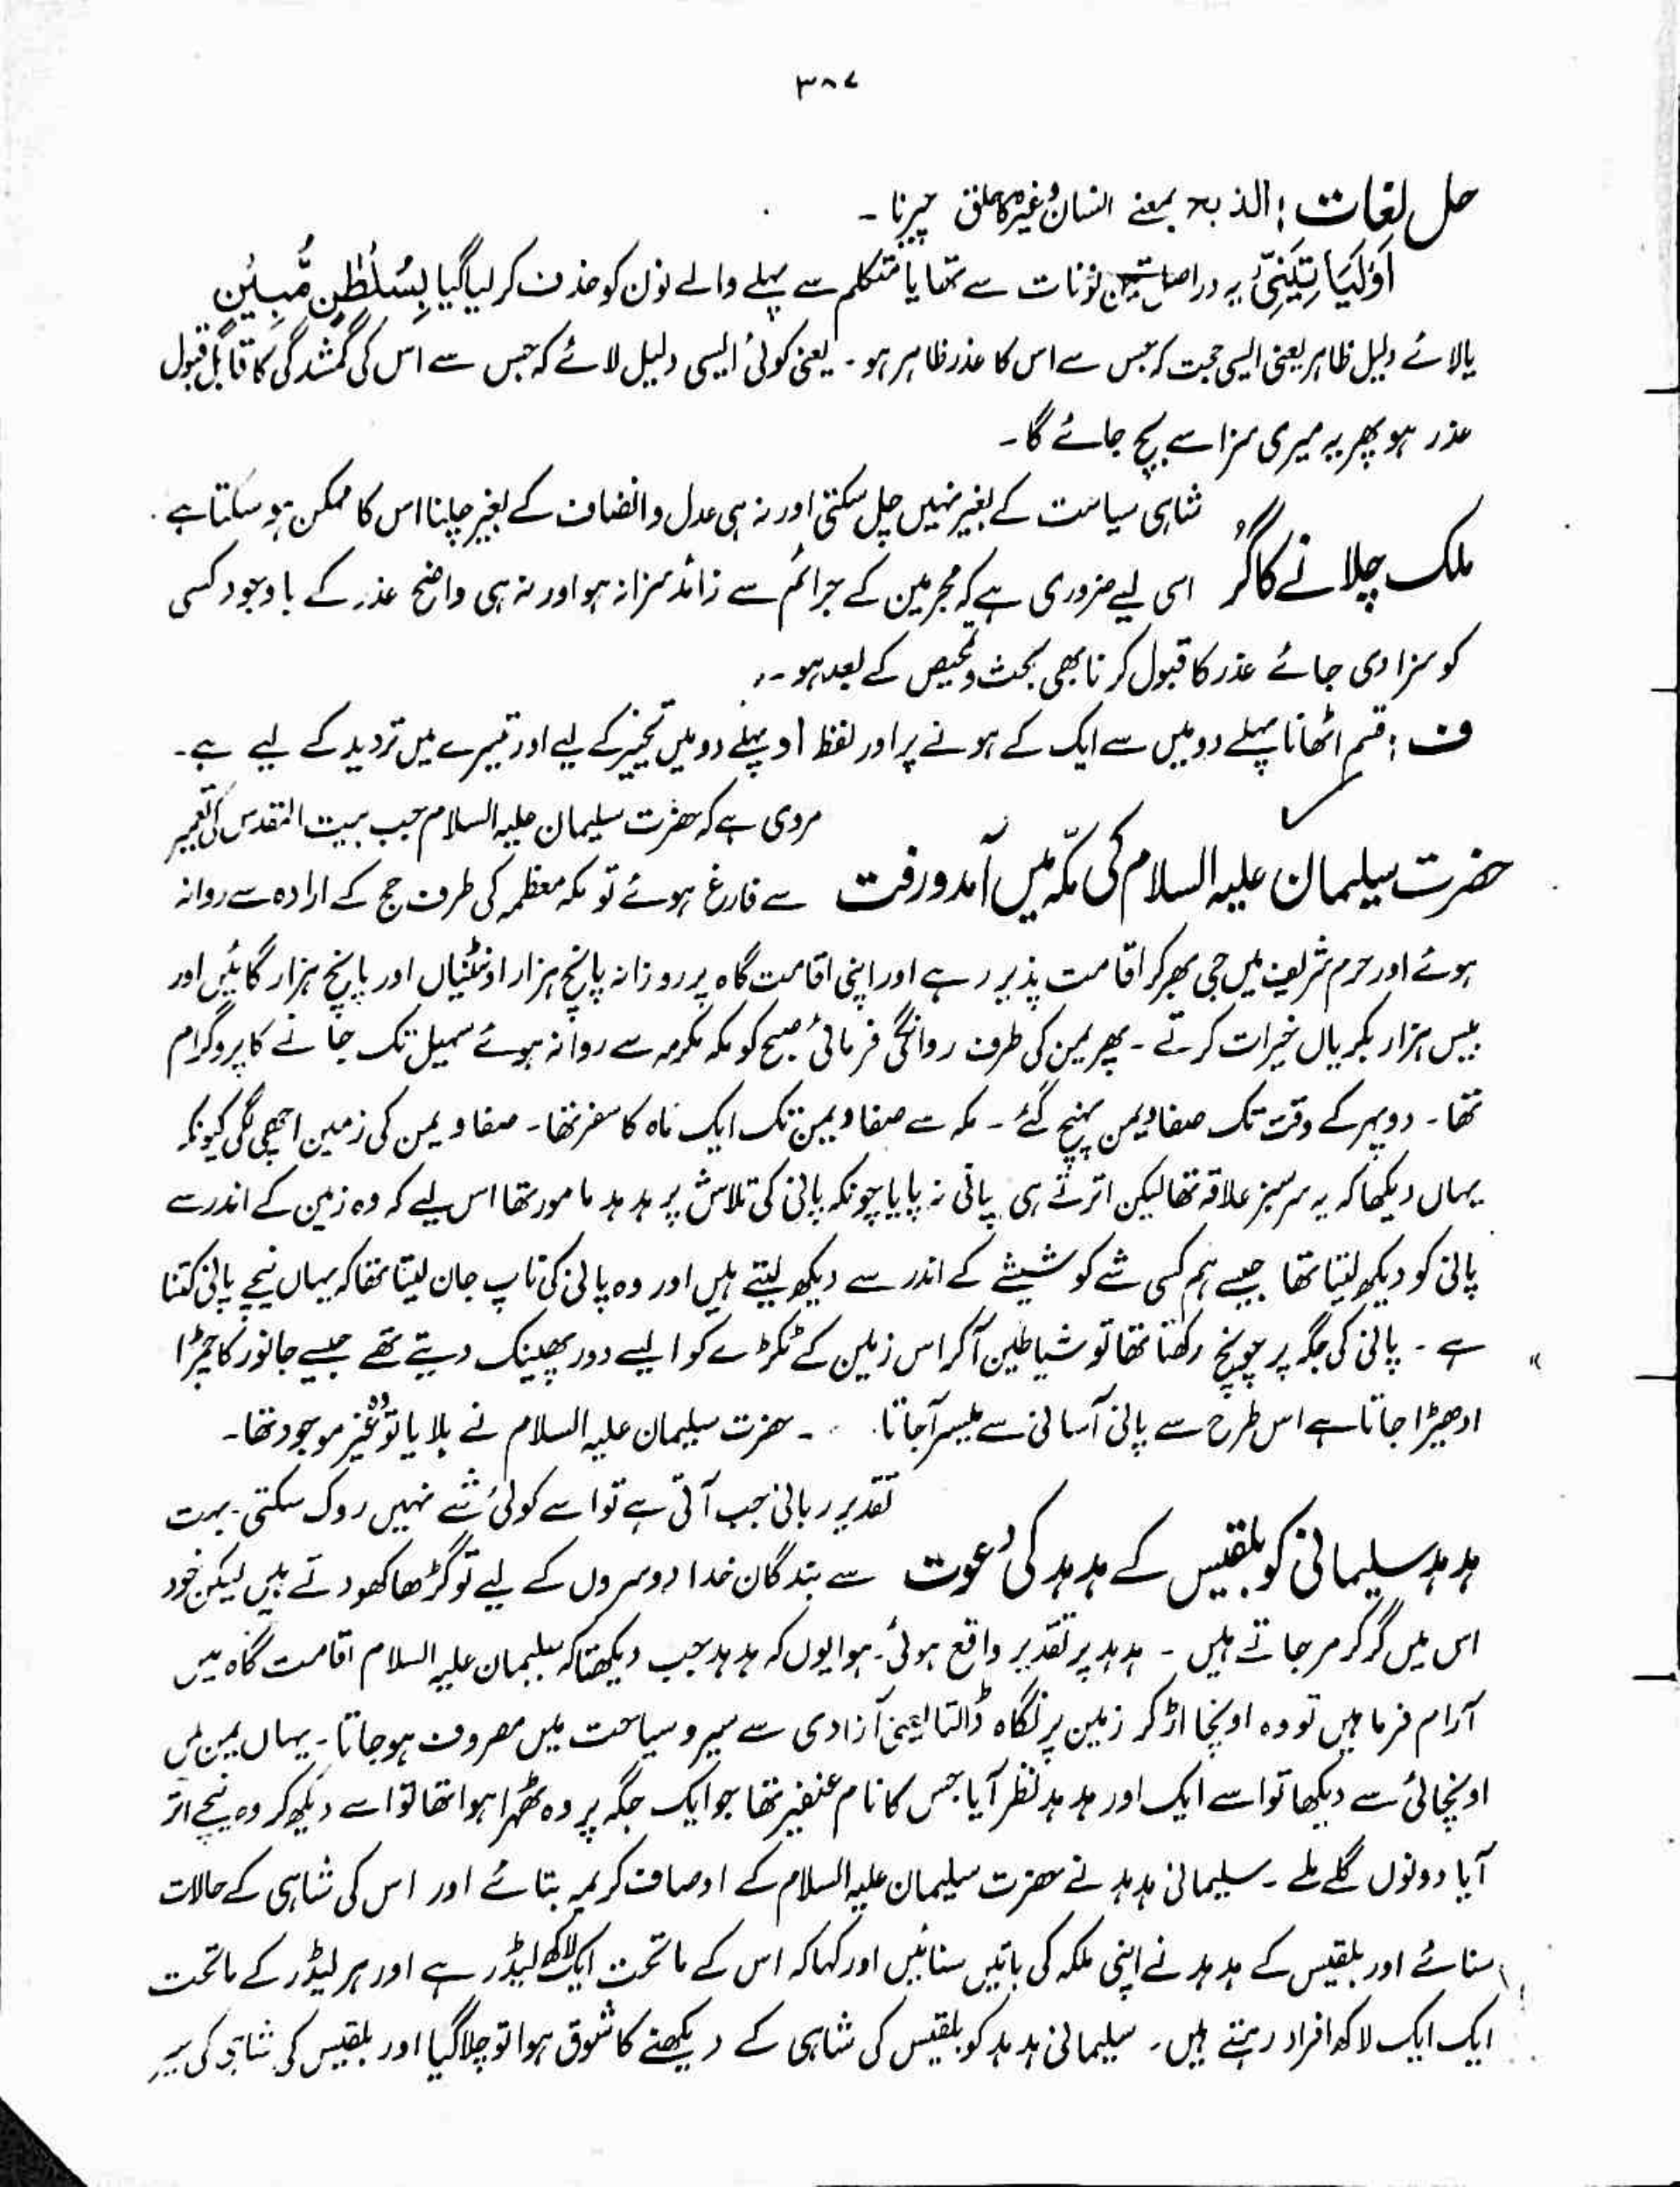 ۳۸۷
حل لغات: الذبح بمعنے انسان وغیرہ کا حلق چیرنا -
اَوْ لَیَاْتِیَنِّیْ یہ دراصل تین نونات سے تھا یا متکلم سے پہلے والے نون کو حذف کر لیا گیا بِسُلْطٰنٍ مُّبِیْنٍ
یا لائے دلیل ظاہر یعنی ایسی حجت کہ جس سے اس کا عذر ظاہر ہو - یعنی کوئی ایسی دلیل لائے کہ جس سے اس کی گمشدگی کا قابل قبول
عذر ہو پھر یہ میری سزا سے بچ جائے گا -
شاہی سیاست کے بغیر نہیں چل سکتی اور نہ ہی عدل و انصاف کے بغیر چلنا اس کا ممکن ہو سکتا ہے
ملک چلانے کا گُر اسی لیے ضروری ہے کہ مجرمین کے جرائم سے زائد سزا نہ ہو اور نہ ہی واضح عذر کے باوجود کسی
کو سزا دی جائے عذر کا قبول کرنا بھی بحث و تمحیص کے بعد ہو -
ف: قسم اٹھانا پہلے دو میں سے ایک کے ہونے پر اور لفظ اَو پہلے دو میں تخییر کے لیے اور تیسرے میں تردید کے لیے ہے -
مروی ہے کہ حضرت سلیمان علیہ السلام جب بیت المقدس کی تعمیر
حضرت سلیمان علیہ السلام کی مکّہ میں آمد و رفت سے فارغ ہوئے تو مکہ معظمہ کی طرف حج کے ارادہ سے روانہ
ہوئے اور حرم شریف میں جی بھر کر اقامت پذیر رہے اور اپنی اقامت گاہ پر روزانہ پانچ ہزار اونٹنیاں اور پانچ ہزار گائیں اور
بیس ہزار بکریاں خیرات کرتے - پھر یمن کی طرف روانگی فرمائی صبح کو مکہ مکرمہ سے روانہ ہوئے سہیل تک جانے کا پروگرام
تھا - دوپہر کے وقت تک صفا و یمن پہنچ گئے - مکہ سے صفا و یمن تک ایک ماہ کا سفر تھا - صفا و یمن کی زمین اچھی لگی کیونکہ
یہاں دیکھا کہ یہ سرسبز علاقہ تھا لیکن اترتے ہی پانی نہ پایا چونکہ پانی کی تلاش پر ہدہد مامور تھا اس لیے کہ وہ زمین کے اندر سے
پانی کو دیکھ لیتا تھا جیسے ہم کسی شے کو شیشے کے اندر سے دیکھ لیتے ہیں اور وہ پانی کی ناپ جان لیتا تھا کہ یہاں نیچے پانی کتنا
ہے - پانی کی جگہ پر چونچ رکھتا تھا تو شیاطین آ کر اس زمین کے ٹکڑے کو ایسے دور پھینک دیتے تھے جیسے جانور کا چمڑا
ادھیڑا جاتا ہے اس طرح سے پانی آسانی سے میسر آ جاتا - حضرت سلیمان علیہ السلام نے بلایا تو وہ غیر موجود تھا -
تقدیر ربانی جب آتی ہے تو اسے کوئی شے نہیں روک سکتی - بہت
ہدہد سلیمانی کو بلقیس کے ہدہد کی دعوت سے بندگان خدا دوسروں کے لیے تو گڑھا کھودتے ہیں لیکن خود
اس میں گر کر مر جاتے ہیں - ہدہد پر تقدیر واقع ہوئی - ہوا یوں کہ ہدہد جب دیکھتا کہ سلیمان علیہ السلام اقامت گاہ میں
آرام فرما ہیں تو وہ اونچا اڑ کر زمین پر نگاہ ڈالتا یعنی آزادی سے سیر و سیاحت میں مصروف ہو جاتا - یہاں یمن میں
اونچائی سے دیکھا تو اسے ایک اور ہدہد نظر آیا جس کا نام عنفیر تھا جو ایک جگہ پر وہ ٹھہرا ہوا تھا تو اسے دیکھ کر وہ نیچے اتر
آیا دونوں گلے ملے - سلیمانی ہدہد نے حضرت سلیمان علیہ السلام کے اوصاف کریمہ بتائے اور اس کی شاہی کے حالات
سنائے اور بلقیس کے ہدہد نے اپنی ملکہ کی باتیں سنائیں اور کہا کہ اس کے ماتحت ایک لاکھ لیڈر ہے اور ہر لیڈر کے ماتحت
ایک ایک لاکھ افراد رہتے ہیں - سلیمانی ہدہد کو بلقیس کی شاہی کے دیکھنے کا شوق ہوا تو چلا گیا اور بلقیس کی شاہی کی سیر